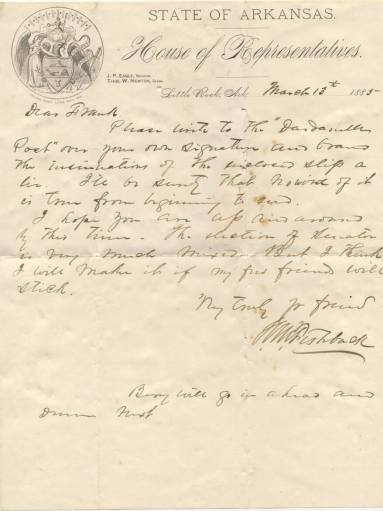 STATE OF ARKANSAS.
House of Representatives.
J. P. EAGLE, Speaker
THOS. W. NEWTON, Clerk
Little Rock, Ark. March 13th 1885
Dear Frank
Please write to the "Dardanelle
Post" over your own signature and brand
the insinuations of the inclosed slip a
lie. I'll be surety that no word of it
is true from beginning to end.
I hope you are up and around
by this time. The election of Senator
is very much mixed. But I think
I will make it if my friends will
stick.
Very truly yr friend
W M Fishback
Berry will go in ahead and
next